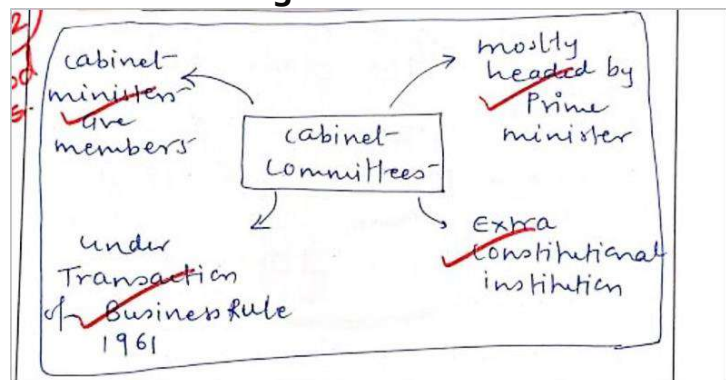 cabinet
ministers
are
members
mostly
headed by
Prime
minister
cabinet
committees
under
Transaction
of Business Rule
1961
Extra
constitutional
institution